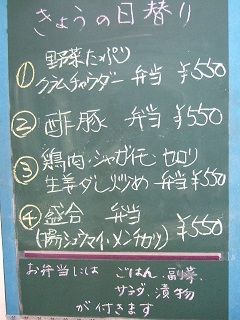 きょうの日替り
① 野菜たっぷり
クラムチャウダー 弁当 ¥550
② 酢豚 弁当 ¥550
③ 鶏肉・ジャガイモ・セロリ
生姜ダし炒め 弁当 ¥550
④ 盛合 弁当 ¥550
(陽シュウマイ・メンチカツ)
お弁当には ごはん、副菜、
サラダ、漬物
が付きます